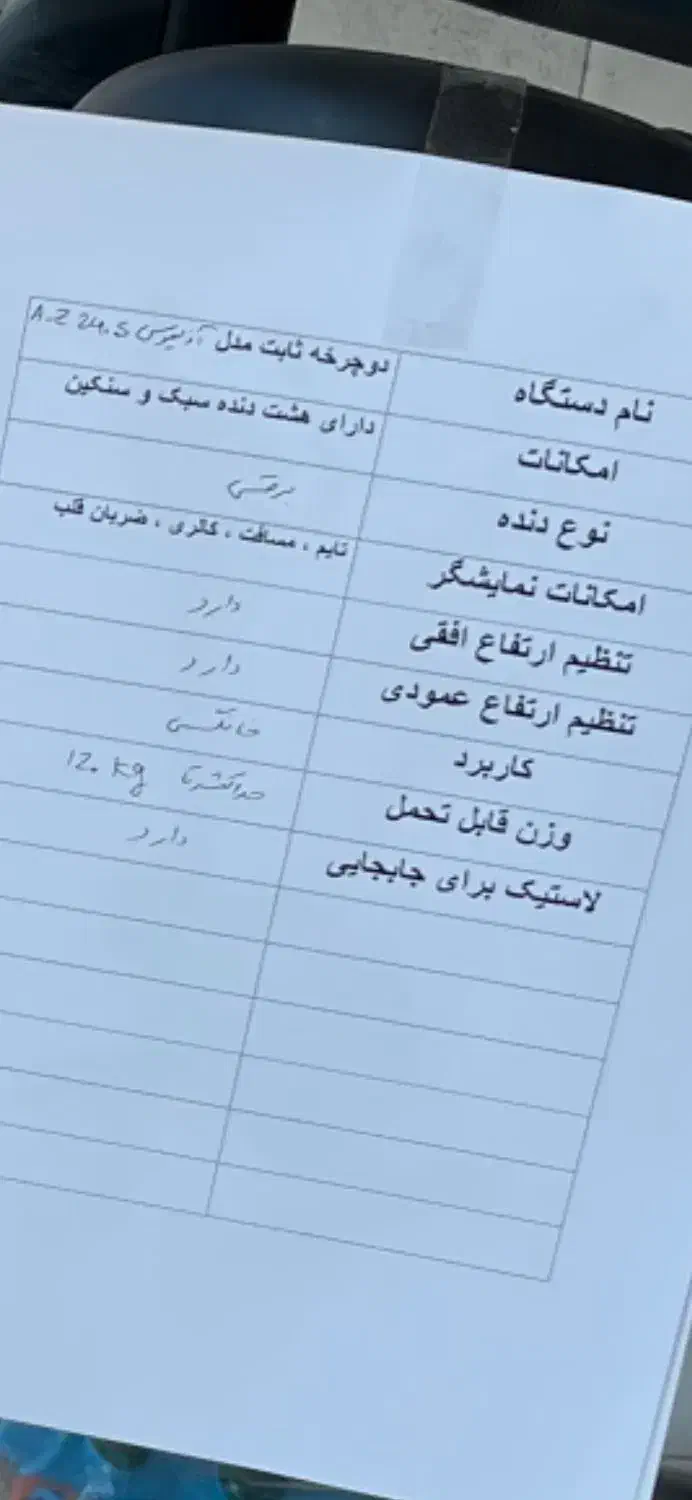 نام دستگاه دوچرخه ثابت مدل A.Z 24.5
امکانات دارای هشت دنده سبک و سنگین
نوع دنده
امکانات نمایشگر تایم ، مسافت ، کالری ، ضربان قلب
تنظیم ارتفاع افقی دارد
تنظیم ارتفاع عمودی دارد
کاربرد خانگی
وزن قابل تحمل حداکثر تا ۱۲۰ kg
لاستیک برای جابجایی دارد